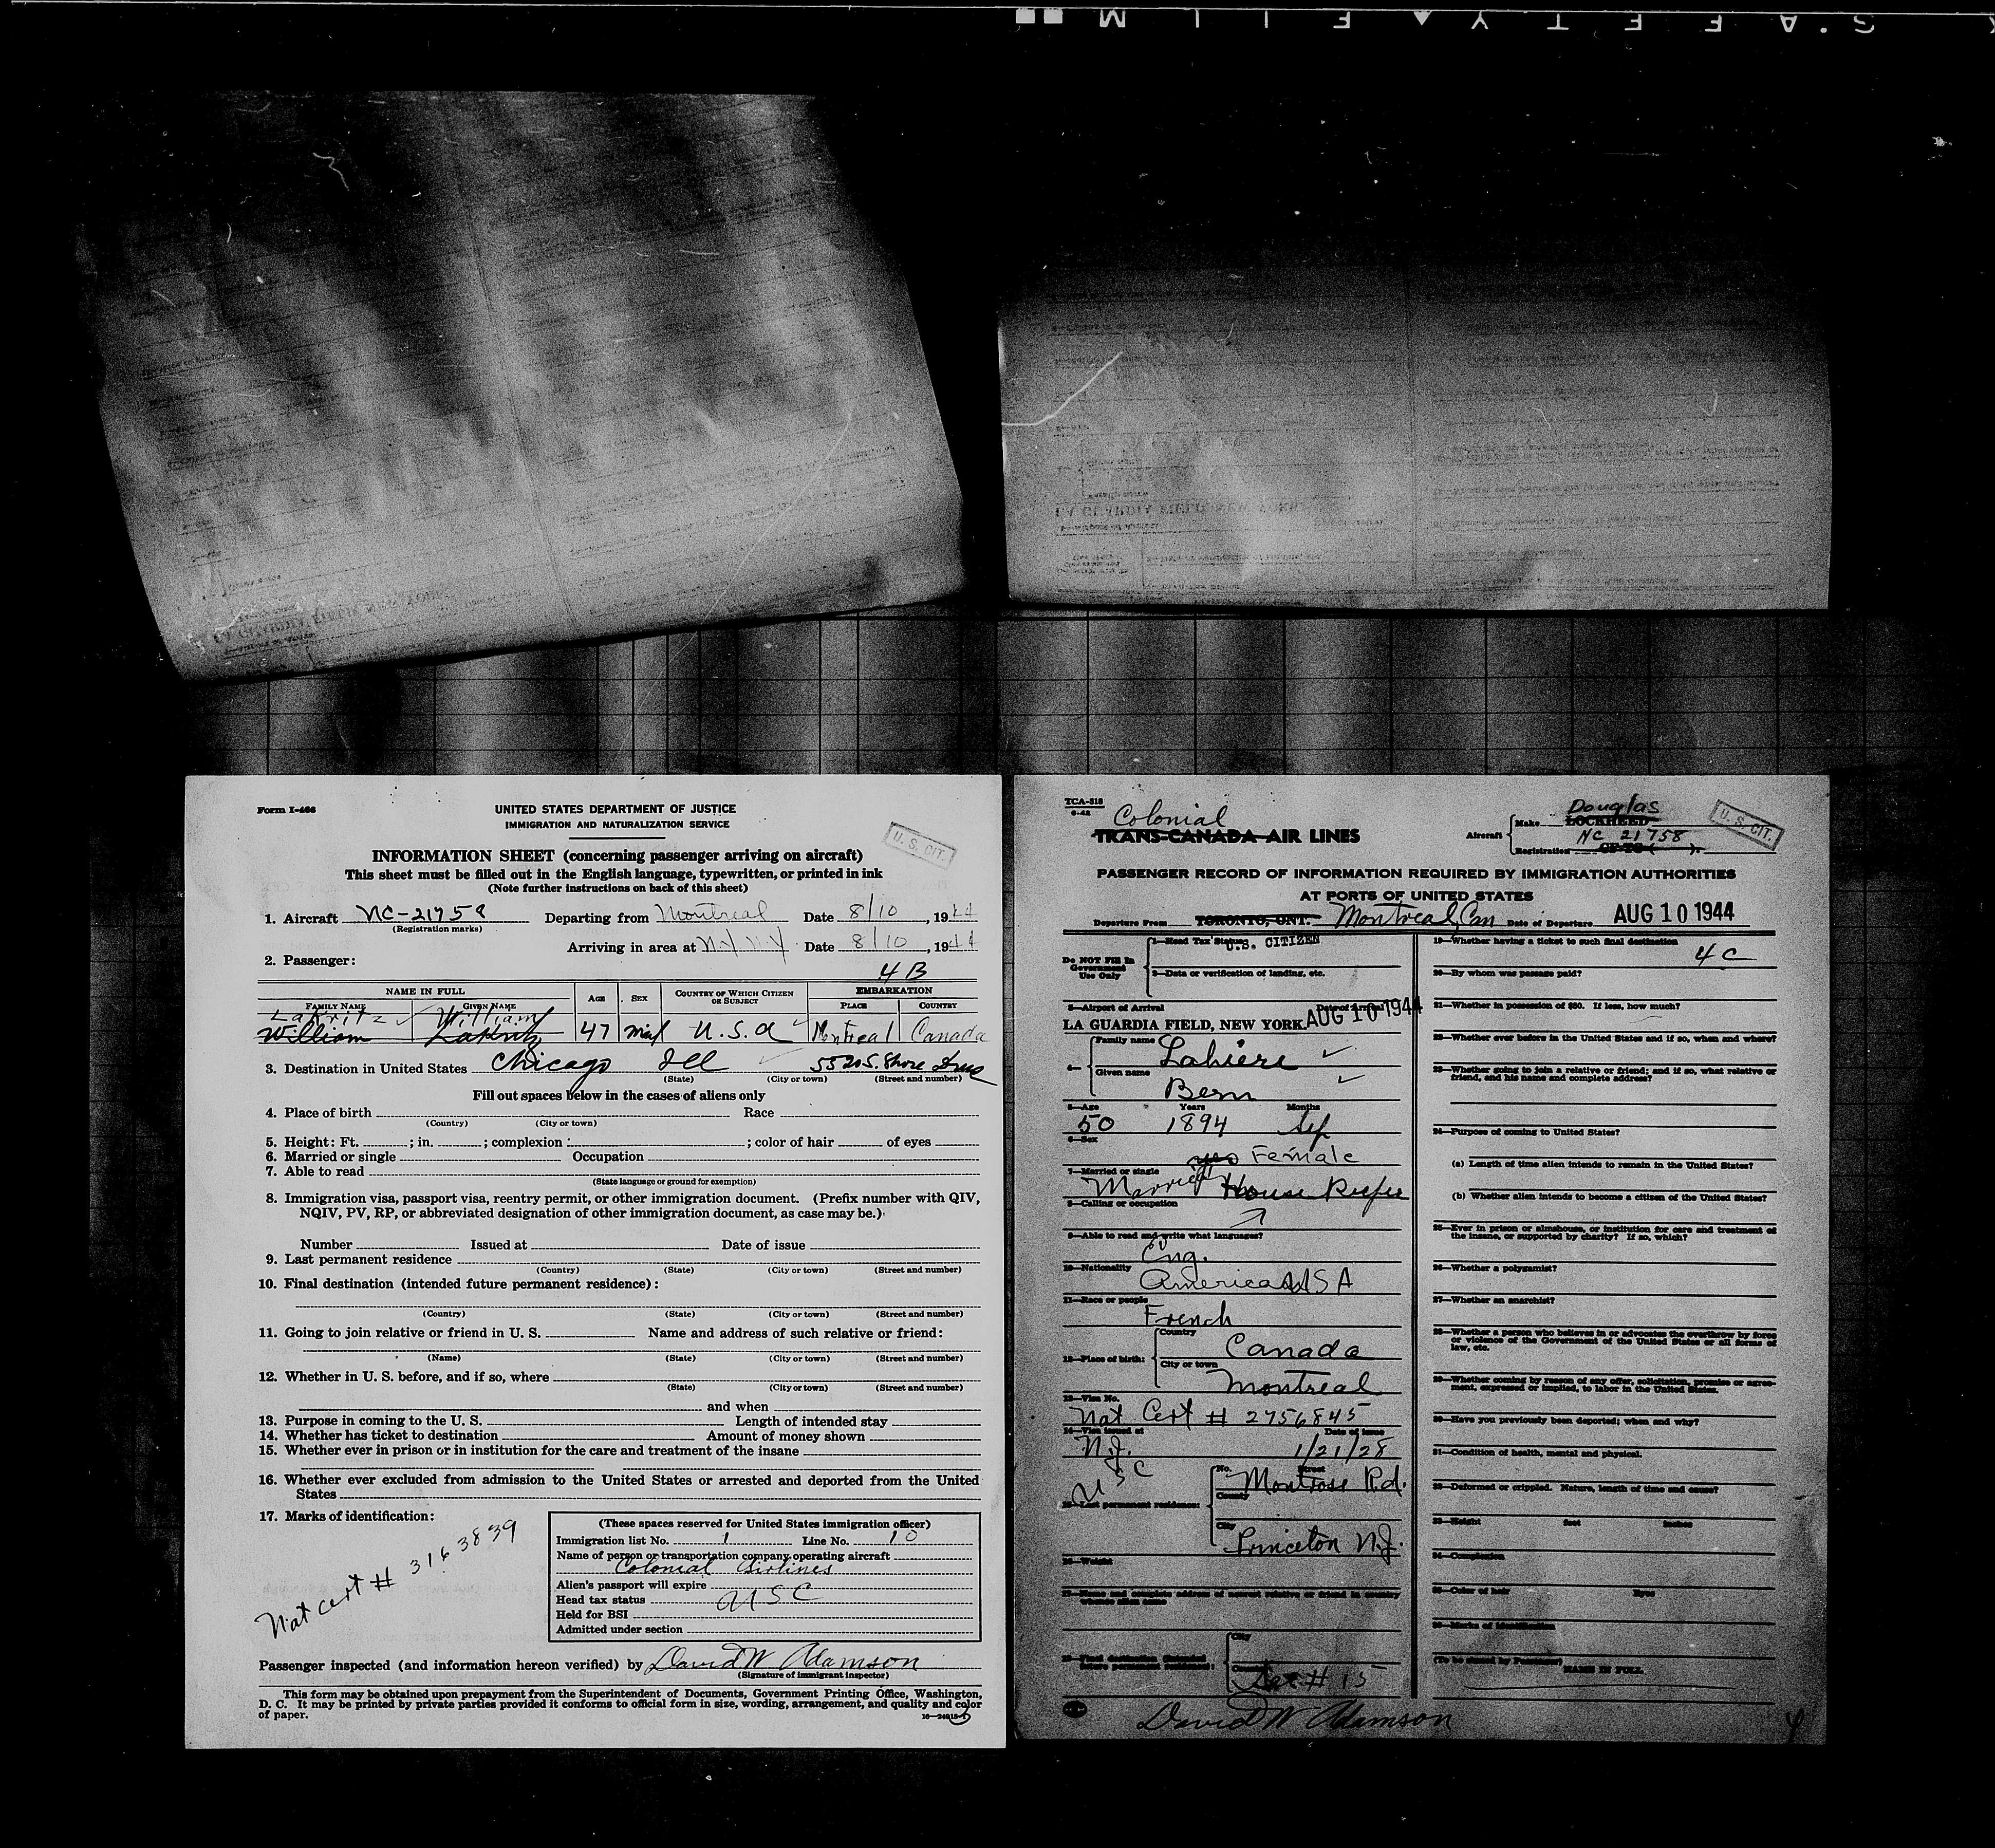 S.AFETY▲FILM
Form I-466
UNITED STATES DEPARTMENT OF JUSTICE
IMMIGRATION AND NATURALIZATION SERVICE
U. S. CIT.
INFORMATION SHEET (concerning passenger arriving on aircraft)
This sheet must be filled out in the English language, typewritten, or printed in ink
(Note further instructions on back of this sheet)
1. Aircraft NC-21758 Departing from Montreal Date 8/10, 1944
(Registration marks)
Arriving in area at N.Y. N.Y. Date 8/10, 1944
2. Passenger:
4 B
NAME IN FULL AGE SEX COUNTRY OF WHICH CITIZEN OR SUBJECT EMBARKATION
FAMILY NAME GIVEN NAME PLACE COUNTRY
Lakritz William
William Lakritz 47 Mal U.S.A Montreal Canada
3. Destination in United States Chicago Ill 5520 S. Shore Drive
(State) (City or town) (Street and number)
Fill out spaces below in the cases of aliens only
4. Place of birth Race
(Country) (City or town)
5. Height: Ft. ; in. ; complexion ; color of hair of eyes
6. Married or single Occupation
7. Able to read
(State language or ground for exemption)
8. Immigration visa, passport visa, reentry permit, or other immigration document. (Prefix number with QIV,
NQIV, PV, RP, or abbreviated designation of other immigration document, as case may be.)
Number Issued at Date of issue
9. Last permanent residence
(Country) (State) (City or town) (Street and number)
10. Final destination (intended future permanent residence):
(Country) (State) (City or town) (Street and number)
11. Going to join relative or friend in U. S. Name and address of such relative or friend:
(Name) (State) (City or town) (Street and number)
12. Whether in U. S. before, and if so, where
(State) (City or town) (Street and number)
and when
13. Purpose in coming to the U. S. Length of intended stay
14. Whether has ticket to destination Amount of money shown
15. Whether ever in prison or in institution for the care and treatment of the insane
16. Whether ever excluded from admission to the United States or arrested and deported from the United
States
17. Marks of identification:
Nat cert # 3163839
(These spaces reserved for United States immigration officer)
Immigration list No. 1 Line No. 10
Name of person or transportation company operating aircraft
Colonial Airlines
Alien's passport will expire
Head tax status USC
Held for BSI
Admitted under section
Passenger inspected (and information hereon verified) by David W Adamson
(Signature of immigrant inspector)
This form may be obtained upon prepayment from the Superintendent of Documents, Government Printing Office, Washington,
D. C. It may be printed by private parties provided it conforms to official form in size, wording, arrangement, and quality and color
of paper.
3
TCA-518
6-42
Colonial
TRANS-CANADA AIR LINES
Aircraft Make Douglas LOCKHEED
Registration NC 21758 CF-TC ( ).
U. S. CIT.
PASSENGER RECORD OF INFORMATION REQUIRED BY IMMIGRATION AUTHORITIES
AT PORTS OF UNITED STATES
Departure From TORONTO, ONT. Montreal, Can Date of Departure AUG 10 1944
Do NOT Fill In Government Use Only
1—Head Tax Status U.S. CITIZEN
2—Data or verification of landing, etc.
3—Airport of Arrival Date of Arrival
LA GUARDIA FIELD, NEW YORK. AUG 10 1944
4— Family name Lahiere
Given name Bern
5—Age Years Months
50 1894 Sep
6—Sex Female
7—Married or single
Married House
8—Calling or occupation
9—Able to read and write what languages?
Eng.
10—Nationality American USA
11—Race or people
French
12—Place of birth: Country Canada
City or town Montreal
13—Visa No.
Nat Cert # 2756845
14—Visa issued at Date of issue
N.J. 1/21/28
USC
15—Last permanent residence: No. Street Montrose Rd.
County
City Princeton N.J.
16—Weight
17—Name and complete address of nearest relative or friend in country
whence alien came
18—Final destination (intended future permanent residence):
City
# 15
David W Adamson
19—Whether having a ticket to such final destination
4 C
20—By whom was passage paid?
21—Whether in possession of $50. If less, how much?
22—Whether ever before in the United States and if so, when and where?
23—Whether going to join a relative or friend; and if so, what relative or
friend, and his name and complete address?
24—Purpose of coming to United States?
(a) Length of time alien intends to remain in the United States?
(b) Whether alien intends to become a citizen of the United States?
25—Ever in prison or almshouse, or institution for care and treatment of
the insane, or supported by charity? If so, which?
26—Whether a polygamist?
27—Whether an anarchist?
28—Whether a person who believes in or advocates the overthrow by force
or violence of the Government of the United States or all forms of
law, etc.
29—Whether coming by reason of any offer, solicitation, promise or agree-
ment, expressed or implied, to labor in the United States.
30—Have you previously been deported; when and why?
31—Condition of health, mental and physical.
32—Deformed or crippled. Nature, length of time and cause?
33—Height feet inches
34—Complexion
35—Color of hair Eyes
36—Marks of Identification
(To be signed by Passenger)
NAME IN FULL
4